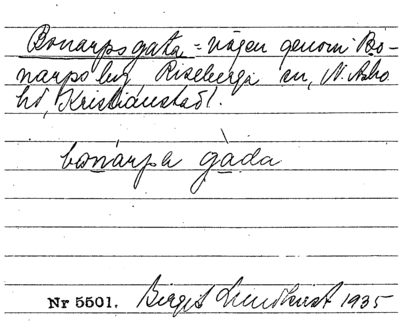 Bonarpsgata = vägen genom Bo-
narps by, Riseberga sn, N. Åsbo
hd, Kristianstad l.
bonárpa gàda
Nr 5501. Birgit Lundkvist 1935